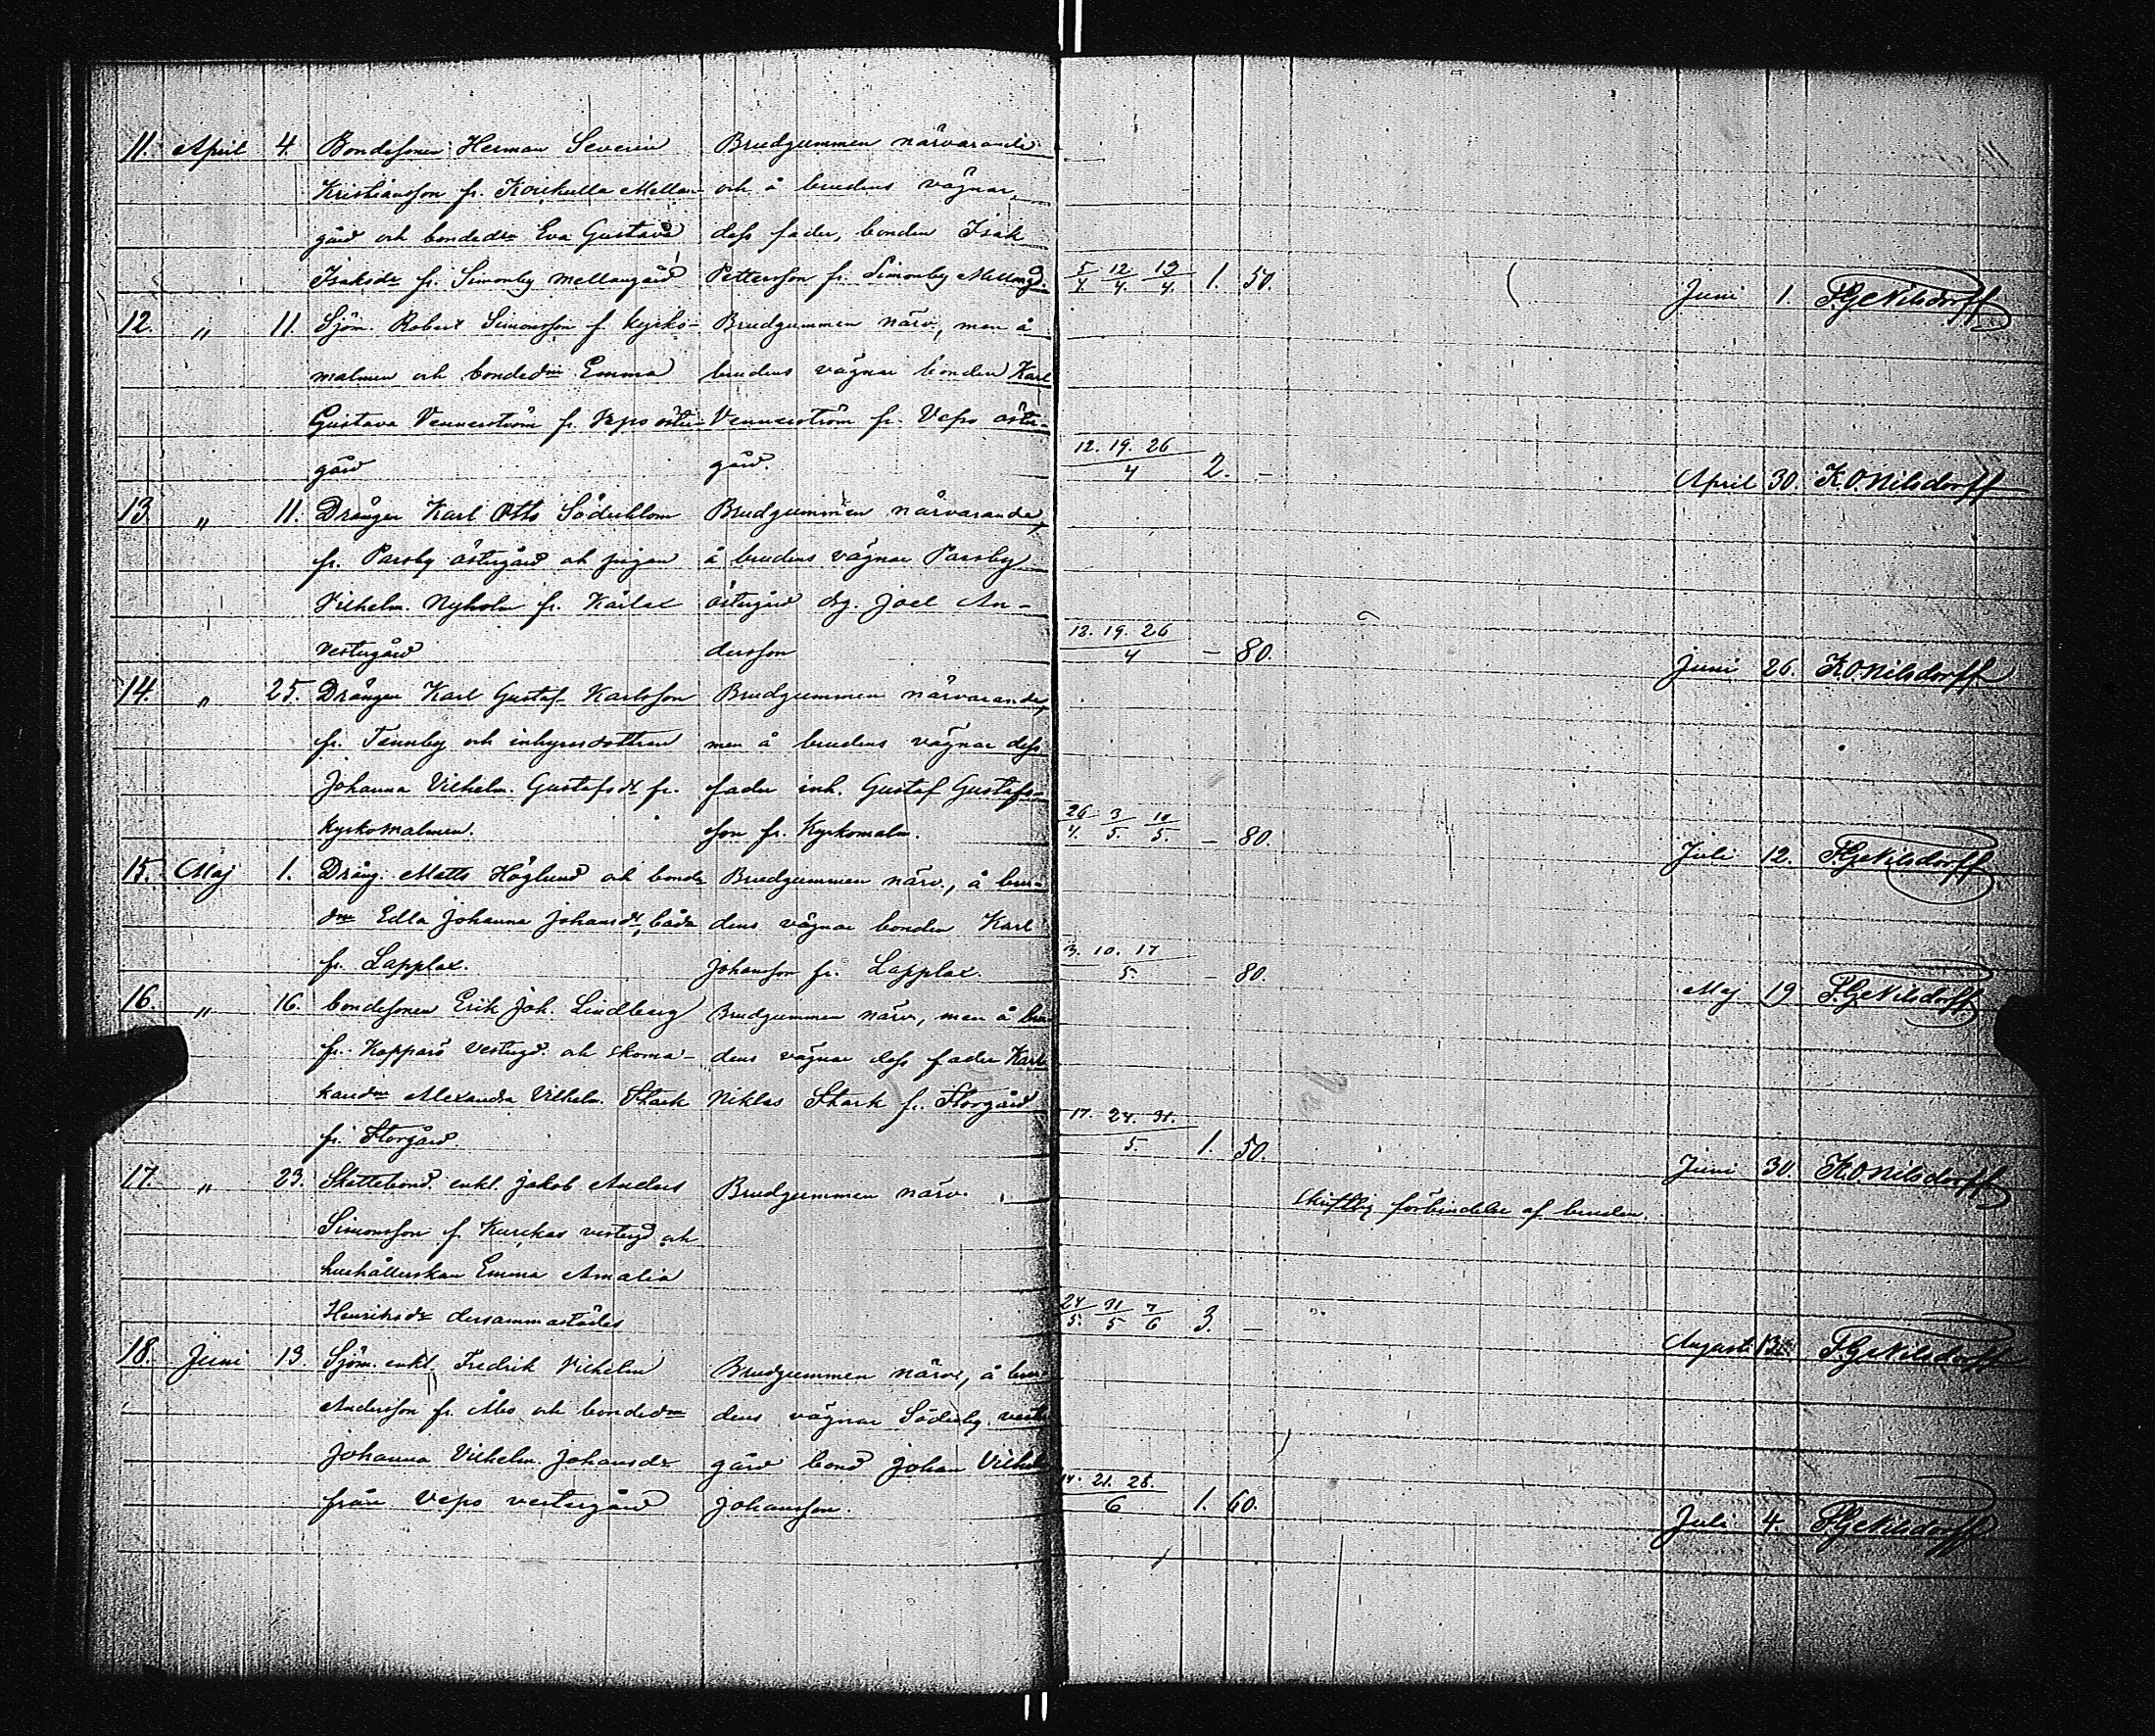 11. April 4. Bondesonen Herman Severin Brudgummen närvarande
Kristiansson fr. Koirkulla Mellan- och å brudens vägnar
gård och bondedn Eva Gustava dess fader, bonden Isak
Isaksdr fr. Simonby Mellangård Pettersson fr. Simonby Mellangd. 5/4. 12/4. 19/4. 1. 50. Juni 1. F.G. Nilsdorff
12. " 11. Sjöm. Robert Simonsson f. Kyrko- Brudgummen närv., men å
malmen och bondedn Emma brudens vägnar bonden Karl
Gustava Vennerström fr. Veps öster- Vennerström fr. Veps öster-
gård gård. 12. 19. 26/4 2. - April 30. K.O. Nilsdorff
13. " 11. Drängen Karl Otto Söderblom Brudgummen närvarande,
fr. Parsby östergård och pigan å brudens vägnar Parsby
Vilhelm. Nyholm fr. Kärlax östergård drg. Joel An-
vestergård dersson 12. 19. 26/4 - 80. Juni 26. K.O. Nilsdorff
14. " 25. Drängen Karl Gustaf Karlsson Brudgummen närvarande,
fr. Tennby och inhysesdottren men å brudens vägnar dess
Johanna Vilhelm. Gustafsdr fr. fader inh. Gustaf Gustafs-
Kyrkomalmen. son fr. Kyrkomalm. 26/4. 3/5. 10/5. - 80. Juli 12. F.G. Nilsdorff
15. Maj 1. Dräng. Matts Höglund och bonde Brudgummen närv., å bru-
dn Edla Johanna Johansdr, båda dens vägnar bonden Karl
fr. Lapplax. Johansson fr. Lapplax. 3. 10. 17/5. - 80. Maj 19 F.G. Nilsdorff
16. " 16. bondesonen Erik Joh. Lindberg Brudgummen närv., men å bru-
fr. Kopparö vestergd. och skoma- dens vägnar dess fader Karl
karedn Alexandra Vilhelm. Stark Niklas Stark fr. Storgård
fr. Storgård. 17. 24. 31./5. 1. 50. Juni 30. K.O. Nilsdorff
17. " 23. Skattebond. enkl. Jakob Anders Brudgummen närv. Skriftlig förbindelse af bruden.
Simonsson f. Kurckas vestergd och
hushållerskan Emma Amalia
Henriksdr dersammastädes 24/5. 31/5 7/6 3. - August. 13. F.G. Nilsdorff
18. Juni 13. Sjöm. enkl. Fredrik Vilhelm Brudgummen närv., å bru-
Andersson fr. Åbo och bondedn dens vägnar Söderby vester
Johanna Vilhelm. Johansdr gård bond Johan Vilhelm
från Veps vestergård Johansson. 14. 21. 28./6 1. 60. Juli 4. F.G. Nilsdorff